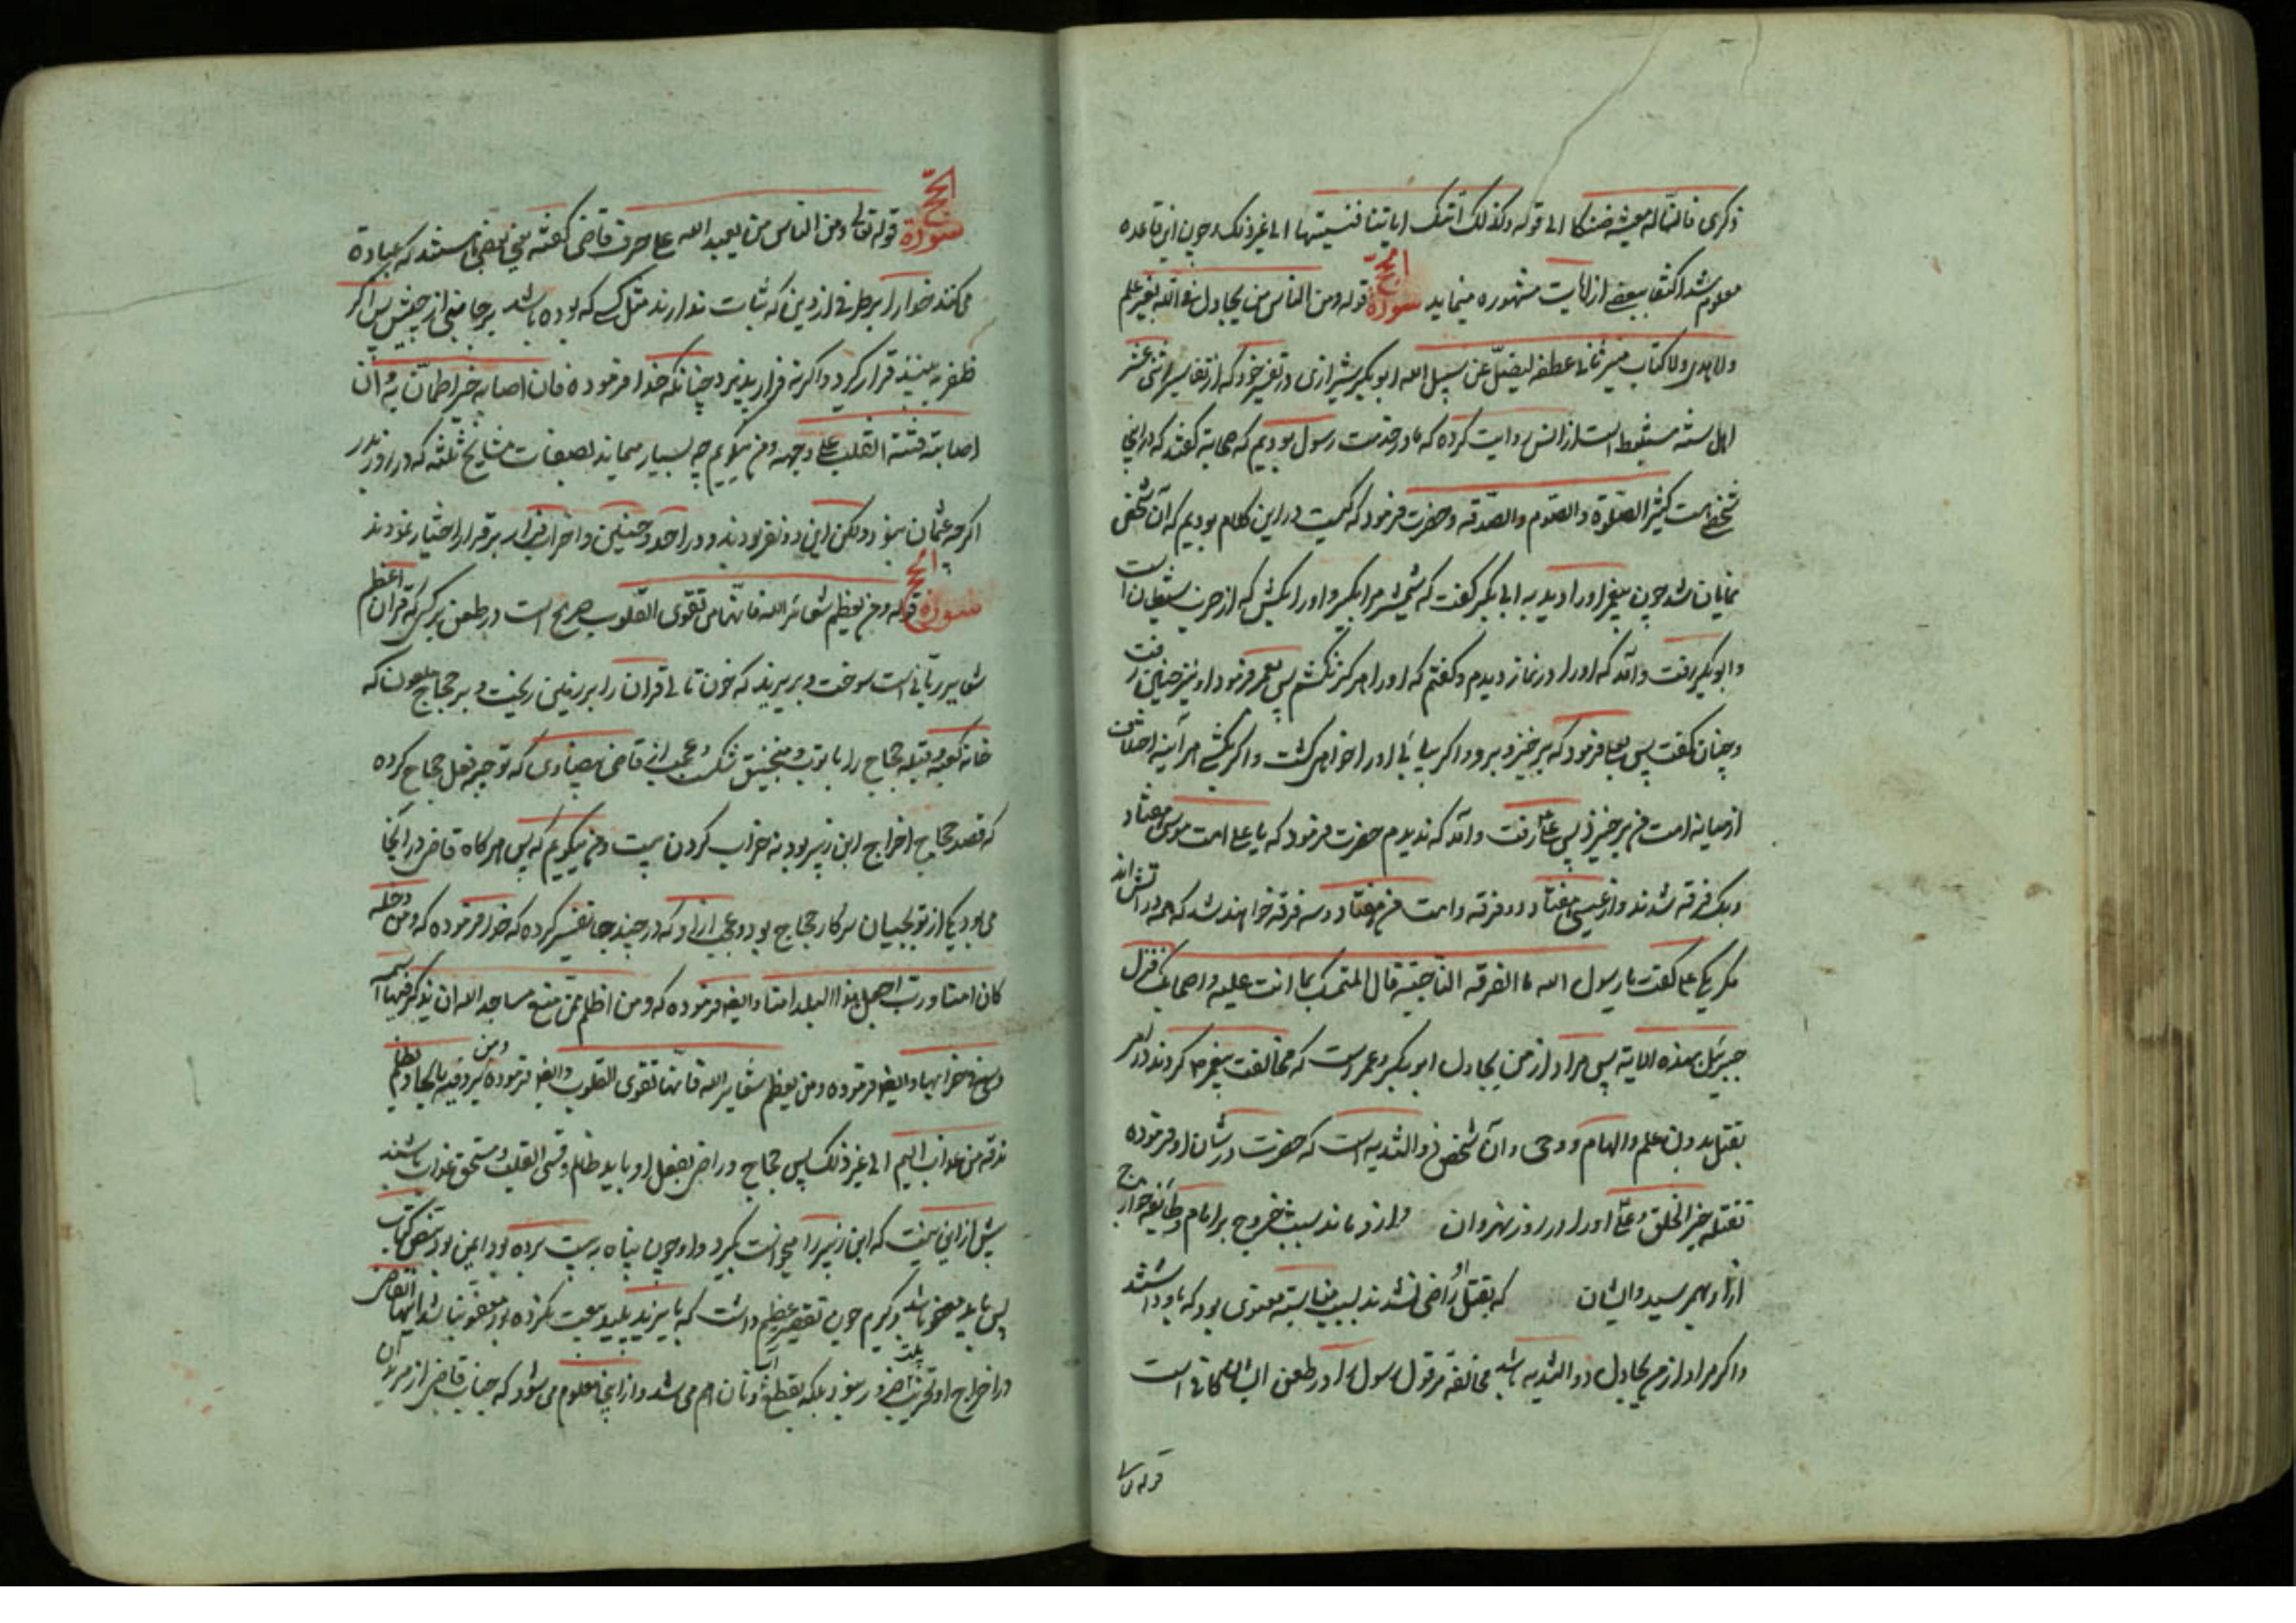 ذکری فان له معیشة ضنکا الی قوله وکذلک اتتک ایاتنا فنسیتها الی غیر ذلک و چون این قاعده
معلوم شد اکتفا ببعضی از ایات مشهوره مینماید سورة الحج قوله ومن الناس من یجادل فی الله بغیر علم
ولا هدی ولا کتاب منیر ثانی عطفه لیضل عن سبیل الله ابو بکر شیرازی در تفسیر خود که از تفاسیر اثنی عشر
اهل سنه مستنبط است از انس روایت کرده که ما در خدمت رسول بودیم که صحابه گفتند که در اینجا
شخصی هست کثیر الصلوة والصوم والصدقه و حضرت فرمود که کیست در این کلام بودیم که آن شخص
نمایان شد چون پیغمبر او را دید به ابی بکر گفت که شمشیر مرا بگیر و او را بکش که از حزب شیطان است
و ابو بکر رفت و آمد که او را در نماز دیدم و گفتم که او را هرگز نکشم پس بعمر فرمود او نیز چنان رفت
و چنان گفت پس بعلی فرمود که برخیز و برو و اگر بیابی او را خواهی کشت و اگر بکشی هر آینه اختلاف
از میانه امت من برخیزد پس علی رفت و آمد که ندیدم حضرت فرمود که یا علی امت موسی هفتاد
و یک فرقه شدند و از عیسی هفتاد و دو فرقه و امت من هفتاد و سه فرقه خواهند شد که همه در آتش‌اند
مگر یکی علی گفت یا رسول الله ما الفرقه الناجیة قال المتمسک بما انت علیه و اصحابک فنزل
جبرئیل بهذه الایة پس مراد از من یجادل ابو بکر و عمر است که مخالفت پیغمبر کردند در امر
بقتل بدون علم و الهام و وحی و آن شخص ذو الثدیه است که حضرت در شان او فرموده
تقتله خیر الخلق و علی او را در روز نهروان و از او ماند بسبب خروج بر امام و طایفه خوارج
از او بهم رسید و ایشان که بقتل او راضی نشدند بسبب مناسبة معنوی بود که با او داشتند
و اگر مراد از من یجادل ذو الثدیه باشد مخالفة مر قول رسول را در طعن ایشان کافی است
قوله تعالی
سورة الحج قوله تعالی ومن الناس من یعبد الله علی حرف قاضی گفته یعنی بعضی هستند که عبادة
می‌کنند خدا را بر طرفی از دین که ثبات ندارند مثل کسی که بوده باشد بر جانبی از جیش پس اگر
ظفر به بیند قرار گیرد و اگر نه فرار پذیرد چنانکه خدا فرموده فان اصابه خیر اطمأن به وان
اصابته فتنة انقلب علی وجهه و من میگویم چه بسیار میماند بصفات مشایخ ثلثه که در روز بدر
اگر چه عثمان نبود ولکن این دو نفر بودند و در احد و حنین و احزاب فرار بر قرار اختیار نمودند
سورة الحج قوله ومن یعظم شعائر الله فانها من تقوی القلوب صریح است در طعن بر کسی که قرآن اعظم
شعایر ربانی است سوخت و بر یزید که خون تالی قرآن را بر زمین ریخت و بر حجاج ملعون که
خانه کعبه و قبله حجاج را با توب و منجنیق شکست و عجب از قاضی بیضاوی که توجیه فعل حجاج کرده
که قصد حجاج اخراج ابن زبیر بود نه خراب کردن بیت و من میگویم که پس هرگاه قاضی در آنجا
می‌بود یکی از توبچیان سرکار حجاج بود و عجب از او که در چند جا تفسیر کرده که خدا فرموده که ومن دخله
کان امنا و رب اجعل هذا البلد امنا و ایضا فرموده که ومن اظلم ممن منع مساجد الله ان یذکر فیها اسمه
وسعی فی خرابها و ایضا فرموده ومن یعظم شعایر الله فانها تقوی القلوب و ایضا فرموده ومن یرد فیه بالحاد بظلم
نذقه من عذاب الیم الی غیر ذلک پس حجاج و راضی بفعل او باید ظالم و قسی القلب و مستحق عذاب باشند
بیش از این نیست که ابن زبیر را میخواست بگیرد و او چون پناه به بیت برده بود ایمن بود بنص کتاب
پس باید معفو باشد و گیرم چون تقصیر عظیم داشت که با یزید پلید بیعت نکرده بود معفو نباشد
در اخراج او تخریب بیت ضرور نبود بلکه بقطع آب و نان هم می‌شد و از اینجا معلوم می‌شود که جناب قاضی از مریدان